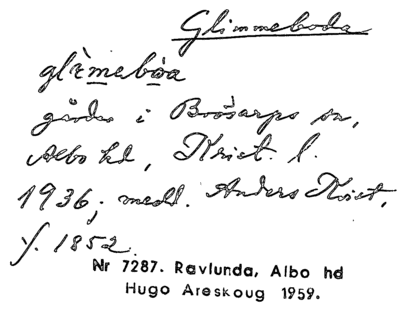 Glimmeboda
glìmebòa
gårdar i Brösarps sn,
Albo hd, Krist. l.
1936, medd. Anders Krist,
f. 1852
Nr 7287. Ravlunda, Albo hd
Hugo Areskoug 1959.